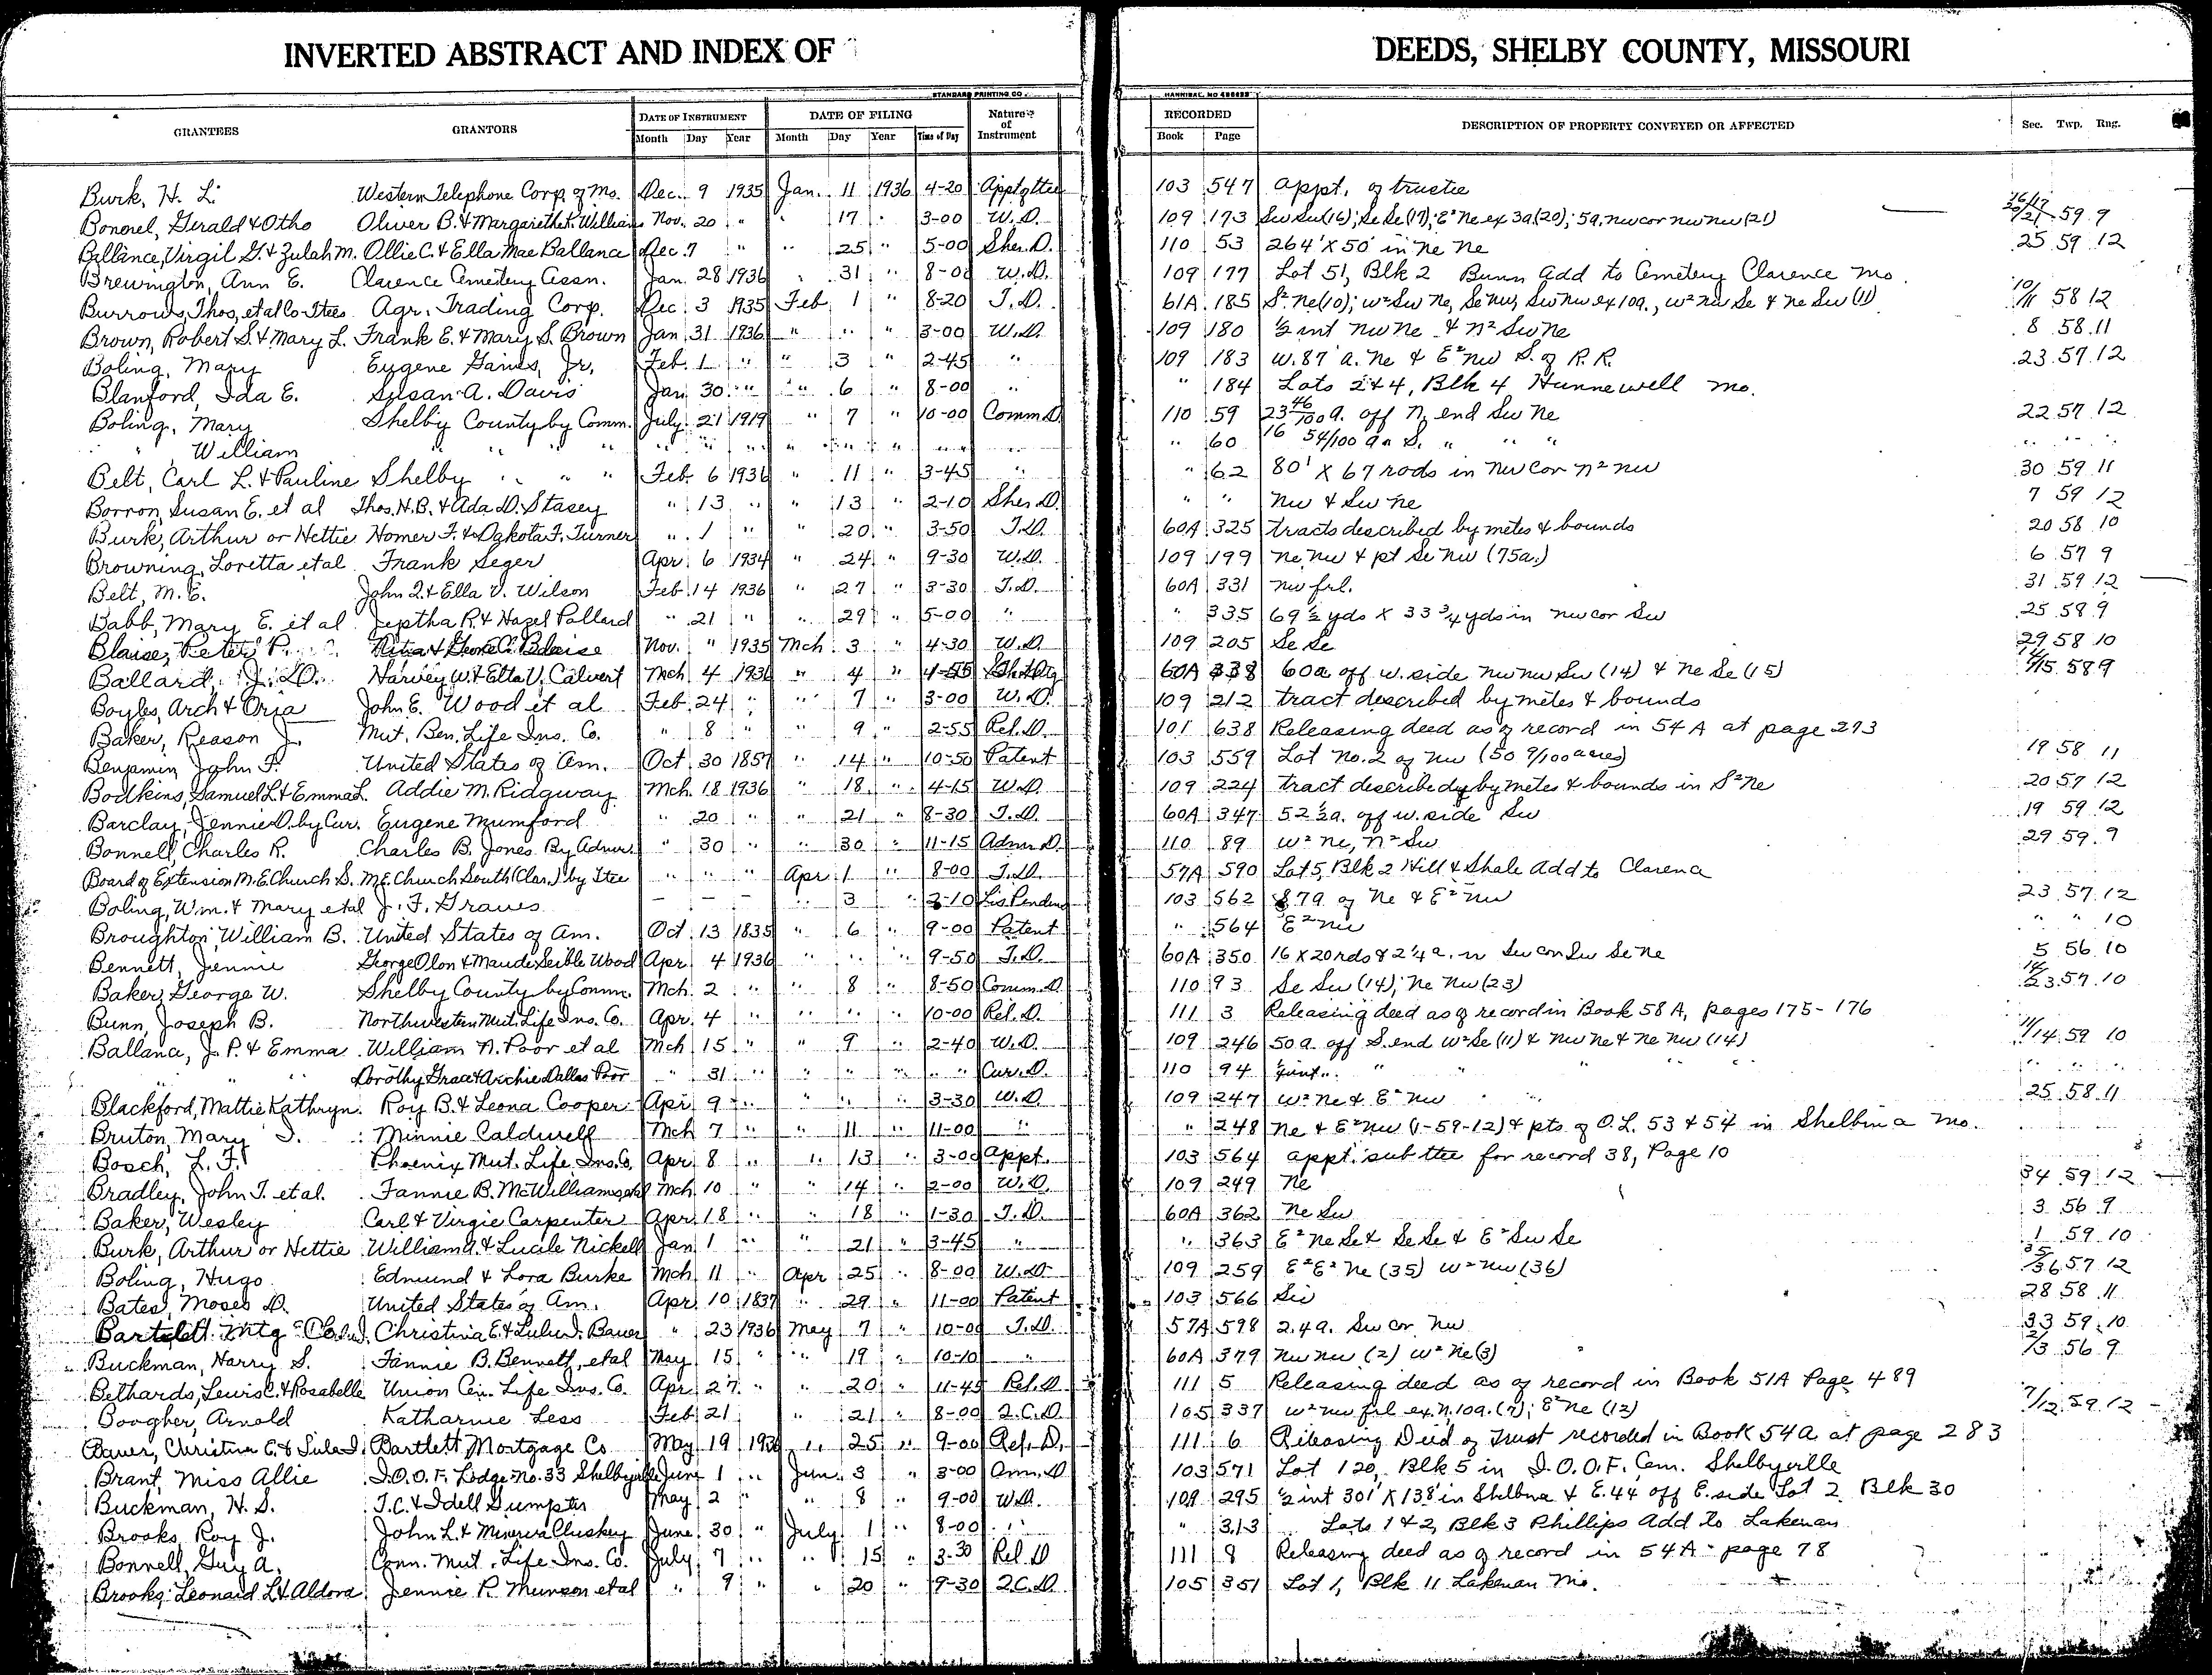 INVERTED ABSTRACT AND INDEX OF DEEDS, SHELBY COUNTY, MISSOURI
STANDARD PRINTING CO. HANNIBAL, MO
GRANTEES GRANTORS DATE OF INSTRUMENT DATE OF FILING Nature of Instrument RECORDED DESCRIPTION OF PROPERTY CONVEYED OR AFFECTED Sec. Twp. Rng.
Month Day Year Month Day Year Time of Day Book Page
Burk, H. L. Western Telephone Corp. of Mo. Dec. 9 1935 Jan. 11 1936 4-20 Appt of ttee 103 547 Appt. of trustee
Bonorel, Gerald & Otho Oliver B. & Margarethe K. William Nov. 20 " " 17 " 3-00 W.D. 109 173 Sw Sw (16); Se Se (17); E² Ne ex 3a (20); 5a, nw cor nw nw (21) 59 9
Ballance, Virgil G. & Zulah M. Ollie C. & Ella Mae Ballance Dec. 7 " " 25 " 5-00 Sher. D. 110 53 264' X 50' in Ne Ne 25 59 12
Brewington, Ann E. Clarence Cemetery Assn. Jan. 28 1936 " 31 " 8-00 W.D. 109 177 Lot 51, Blk 2 Bunn Add to Cemetery Clarence Mo
Burrows, Thos, et al Co-Ttees Agr. Trading Corp. Dec. 3 1935 Feb 1 " 8-20 T.D. 61A 185 S² Ne (10); w² Sw Ne, Se nw, Sw nw ex 10a., w² nw Se & Ne Sw (11) 10/11 58 12
Brown, Robert S. & Mary L. Frank E. & Mary S. Brown Jan 31 1936 " " " 3-00 W.D. 109 180 ½ int Nw Ne & N² Sw Ne 8 58 11
Boling, Mary Eugene Gaines, Jr. Feb. 1 " " 3 " 2-45 " 109 183 W. 87 a. Ne & E² nw S. of R. R. 23 57 12
Blanford, Ida E. Susan A. Davis Jan 30 " " 6 " 8-00 " " 184 Lots 2 & 4, Blk 4 Hunnewell Mo.
Boling, Mary Shelby County by Comm. July 21 1919 " 7 " 10-00 Comm D. 110 59 23 46/100 a. off N. end Sw Ne 22 57 12
" , William " " " " " " " " " " " " " 60 16 54/100 a " S. " " " " " "
Belt, Carl L. & Pauline Shelby " " " Feb. 6 1936 " 11 " 3-45 " " 62 80' X 67 rods in Nw Cor N² nw 30 59 11
Borron, Susan E. et al Thos. H. B. & Ada D. Stasey " 13 " " 13 " 2-10 Sher. D. " " Nw & Sw Ne 7 59 12
Burk, Arthur or Hettie Homer F. & Dakota F. Turner " 1 " " 20 " 3-50 T.D. 60A 325 tracts described by metes & bounds 20 58 10
Browning, Loretta et al Frank Seger Apr 6 1934 " 24 " 9-30 W.D. 109 199 Ne nw & pt Se nw (75a.) 6 57 9
Belt, M. E. John Q. & Ella V. Wilson Feb 14 1936 " 27 " 3-30 T.D. 60A 331 Nw frl. 31 59 12
Babb, Mary E. et al Jeptha R. & Hazel Pollard " 21 " " 29 " 5-00 " " 335 69 ½ yds X 33 ¾ yds in nw cor Sw 25 58 9
Blaise, Peter & George C. Blaise Nov. " 1935 Mch 3 " 4-30 W.D. 109 205 Se Se 29 58 10
Ballard, J. D. Harvey W. & Etta V. Calvert Mch 4 1936 " 4 " 4-55 60A 338 60a off w. side nw nw Sw (14) & Ne Se (15) 14/15 58 9
Boyles, Arch & Orja John E. Wood et al Feb 24 " " 7 " 3-00 W.D. 109 212 tract described by metes & bounds
Baker, Reason J. Mut. Ben. Life Ins. Co. " 8 " " 9 " 2-55 Rel. D. 101 638 Releasing deed as of record in 54A at page 273
Benjamin John F. United States of Am. Oct 30 1857 " 14 " 10-50 Patent 103 559 Lot No. 2 of nw (50 9/100 acres) 19 58 11
Bodkins, Samuel L. & Emma L. Addie M. Ridgway Mch. 18 1936 " 18 " 4-15 W.D. 109 224 tract described by metes & bounds in S² Ne 20 57 12
Barclay, Jennie D. by Cur. Eugene Mumford " 20 " " 21 " 8-30 T.D. 60A 347 52 ½ a. off w. side Sw 19 59 12
Bonnell, Charles R. Charles B. Jones By Admr. " 30 " " 30 " 11-15 Admr. D. 110 89 W² Ne, N² Sw 29 59 9
Board of Extension M. E. Church S. M. E. Church South (Clar.) by Ttee " " " Apr 1 " 8-00 T.D. 57A 590 Lot 5, Blk 2 Hill & Shale Add to Clarence
Boling, Wm. & Mary et al J. F. Graves - - - " 3 " 2-10 Lis Pendens 103 562 87a of Ne & E² nw 23 57 12
Broughton, William B. United States of Am. Oct 13 1835 " 6 " 9-00 Patent " 564 E² nw " " 10
Bennett, Jennie George Olon & Maude Seible Wood Apr 4 1936 " " " 9-50 T.D. 60A 350 16 X 20 rds & 2 ¼ a. in Sw cor Sw Se Ne 5 56 10
Baker, George W. Shelby County by Comm. Mch. 2 " " 8 " 8-50 Comm. D. 110 93 Se Sw (14); Ne Nw (23) 14/23 57 10
Bunn, Joseph B. Northwestern Mut. Life Ins. Co. Apr. 4 " " " " 10-00 Rel. D. 111 3 Releasing deed as of record in Book 58A, pages 175-176
Ballance, J. P. & Emma William N. Poor et al Mch 15 " " 9 " 2-40 W.D. 109 246 50a. off S. end w² Se (11) & Nw Ne & Ne Nw (14) 11/14 59 10
" " " Dorothy Grace & Archie Dallas Poor " 31 " " " " " Cur. D. 110 94 " " " " " "
Blackford, Mattie Kathryn Roy B. & Leona Cooper Apr 9 " " " " 3-30 W.D. 109 247 W² Ne & E² nw 25 58 11
Bruton, Mary J. Minnie Caldwell Mch 7 " " 11 " 11-00 " " 248 Ne & E² Nw (1-59-12) & pts of O.L. 53 & 54 in Shelbina Mo.
Bosch, L. F. Phoenix Mut. Life Ins. Co. Apr 8 " " 13 " 3-00 Appt. 103 564 appt. sub ttee for record 38, Page 10
Bradley, John T. et al. Fannie B. McWilliams et al Mch 10 " " 14 " 2-00 W.D. 109 249 Ne 34 59 12
Baker, Wesley Carl & Virgie Carpenter Apr 18 " " 18 " 1-30 T.D. 60A 362 Ne Sw 3 56 9
Burk, Arthur or Hettie William A. & Lucile Nickell Jan 1 " " 21 " 3-45 " " 363 E² Ne Se & Se Se & E² Sw Se 1 59 10
Boling, Hugo Edmund & Lora Burke Mch 11 " Apr 25 " 8-00 W.D. 109 259 E² E² Ne (35) W² Nw (36) 35/36 57 12
Bates, Moses D. United States of Am. Apr 10 1837 " 29 " 11-00 Patent 103 566 Sw 28 58 11
Bartlett Mtg Christina E. & Lulu D. Bauer " 23 1936 May 7 " 10-00 T.D. 57A 598 2.4a. Sw cor Nw 33 59 10
Buckman, Harry S. Fannie B. Bennett, et al May 15 " " 19 " 10-10 " 60A 379 Nw nw (2) W² Ne (3) 2/3 56 9
Bethards, Lewis C. & Rosabelle Union Cen. Life Ins. Co. Apr 27 " " 20 " 11-45 Rel. D. 111 5 Releasing deed as of record in Book 51A Page 489
Boogher, Arnold Katharine Less Feb 21 " 21 " 8-00 Q.C.D. 105 337 W² nw frl ex N. 10a. (7); E² Ne (12) 7/12 59 12
Bauer, Christina E. & Lula D. Bartlett Mortgage Co May 19 1936 " 25 " 9-00 Rel. D. 111 6 Releasing Deed of Trust recorded in Book 54A at page 283
Brant, Miss Allie I.O.O.F. Lodge No. 33 Shelbyville June 1 " Jun. 3 " 3-00 103 571 Lot 120, Blk 5 in I.O.O.F. Cem. Shelbyville
Buckman, H. S. T. C. & Idell Dumpster May 2 " " 8 " 9-00 W.D. 109 295 ½ int 301' X 138' in Shelbina & E. 44 off E. side Lot 2 Blk 30
Brooks, Roy J. John L. & Minerva Cluskey June 30 " July 1 " 8-00 " " 313 Lots 1 & 2, Blk 3 Phillips Add to Lakenan
Bonnell, Guy A. Conn. Mut. Life Ins. Co. July 7 " " 15 " 3-30 Rel. D 111 8 Releasing deed as of record in 54A - page 78
Brooks, Leonard L. & Aldora Jennie P. Munson et al " 9 " " 20 " 9-30 Q.C.D. 105 351 Lot 1, Blk 11 Lakenan Mo.